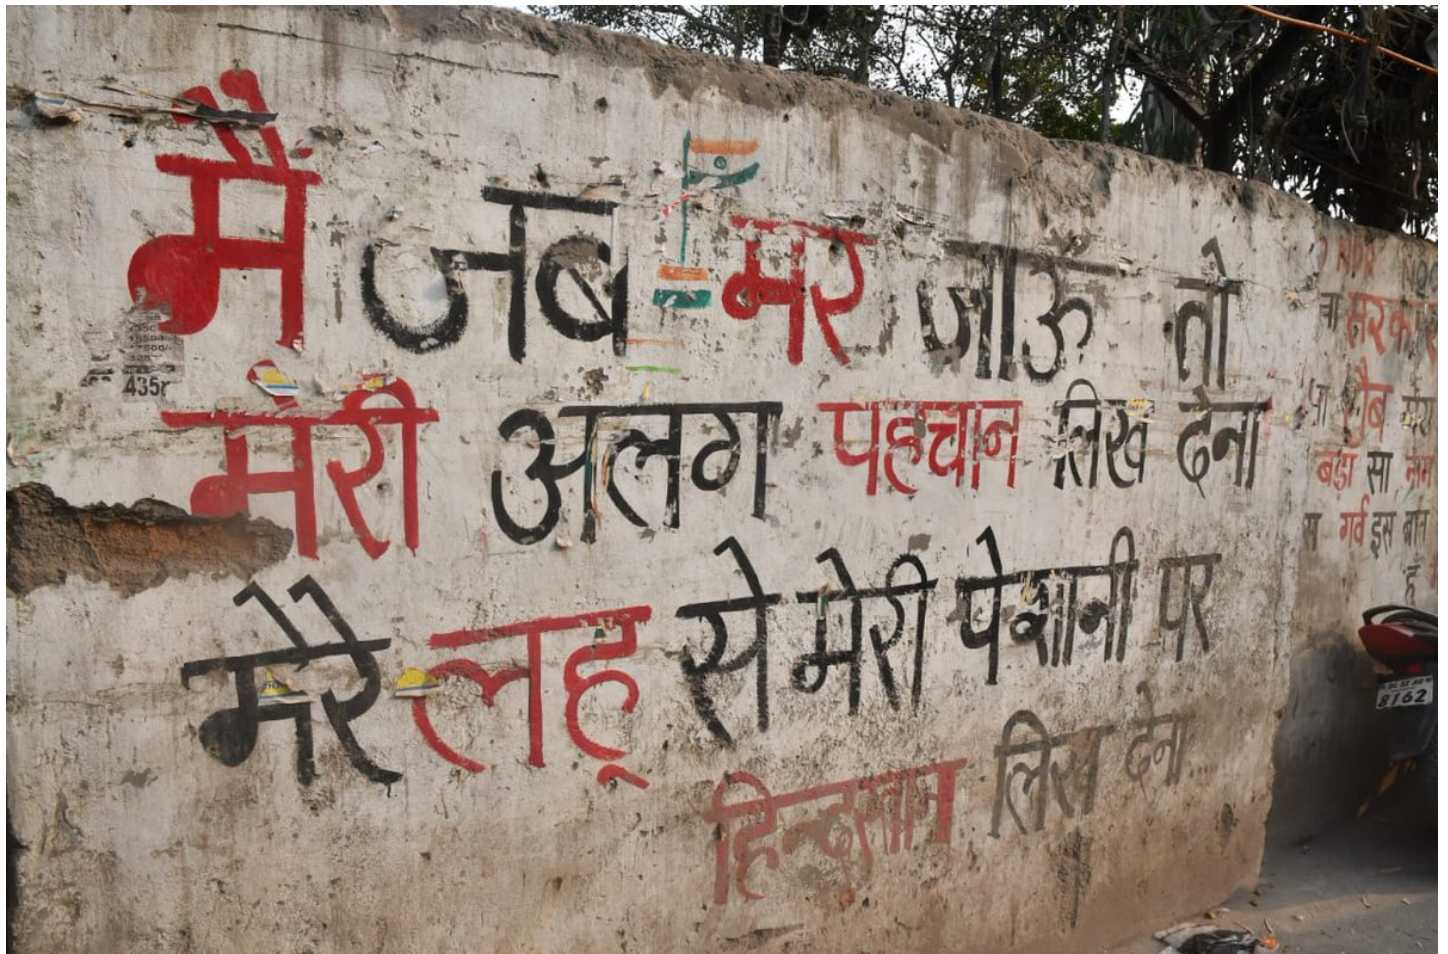 मैं जब मर जाऊ तो
मेरी अलग पहचान लिख देना
मेरे लहू से मेरी पेशानी पर
हिन्दुस्तान लिख देना....
सरकार
बड़ा सा नाम
गर्व इस
435r
8162